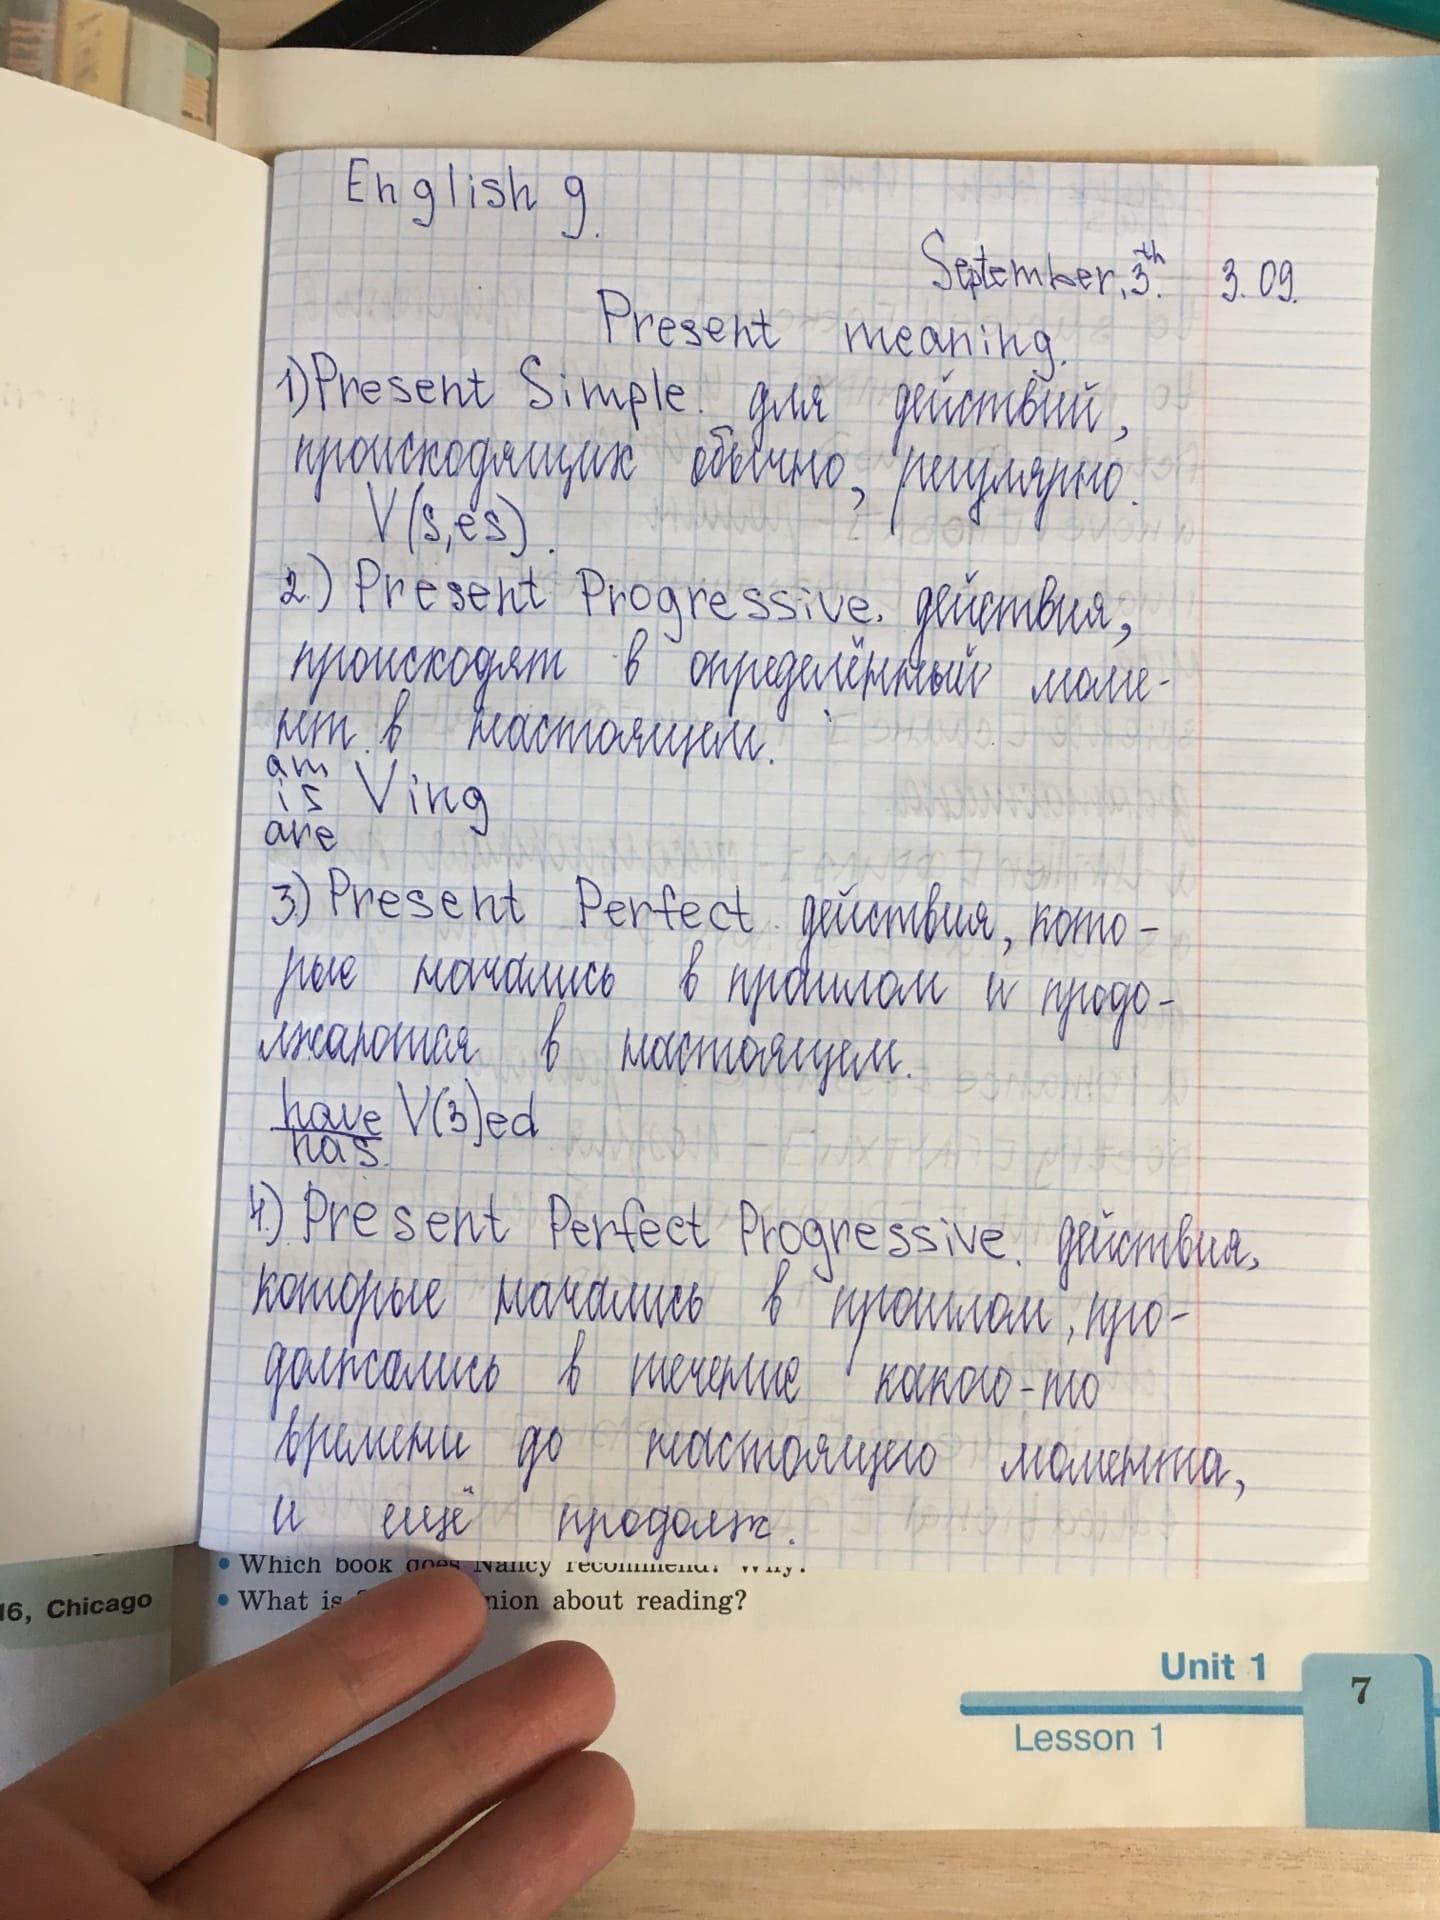 English 9.
September, 3th. 3.09.
Present meaning.
1) Present Simple. для действий,
происходящих обычно, регулярно.
V(s,es).
2.) Present Progressive. действия,
происходят в определённый моме-
нт в настоящем.
am
is Ving
are
3.) Present Perfect. действия, кото-
рые начались в прошлом и продо-
лжаются в настоящем.
have V(3)ed
has.
4.) Present Perfect Progressive. действия,
которые начались в прошлом, про-
должались в течение какого-то
времени до настоящего момента,
и ещё продолж.
• Which book does Nancy recommend? Why?
• What is nion about reading?
16, Chicago
Unit 1
7
Lesson 1